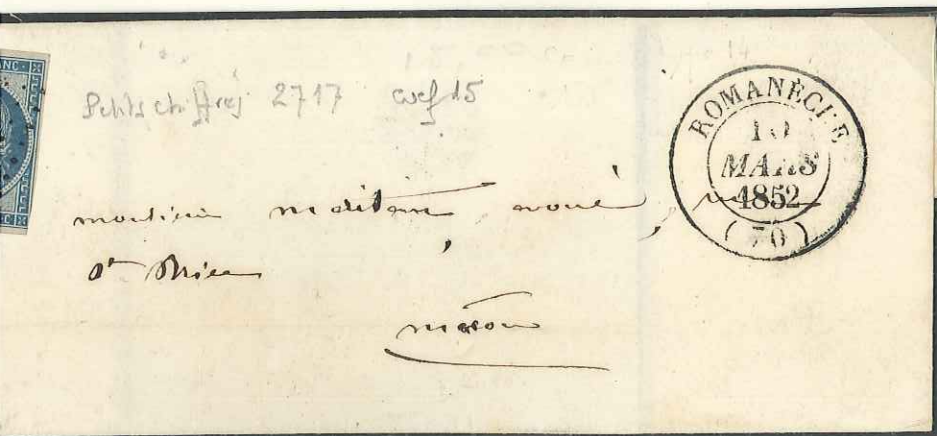 ANC·
Petits chiffres 2717 coef 15
ROMANÈCHE
MARS
1852
(70)
monsieur avoué,
St Brice
macon